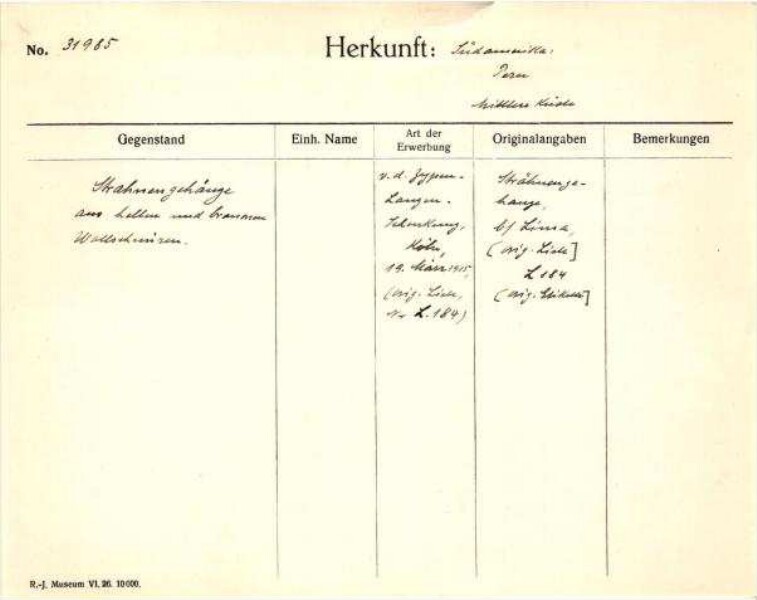 No. 31985
Herkunft: Südamerika:
Peru
Mittlere Küste
Gegenstand
Einh. Name
Art der Erwerbung
Originalangaben
Bemerkungen
Strähnengehänge
aus hellen und braunen
Wollschnüren.
v. d. Zypen-
Langen-
Schenkung,
Köln,
19. März 1915,
(orig. Liste,
Nr L. 184)
Strähnenge-
hänge,
bf Lima,
(orig. Liste]
L 184
(orig. Etikette]
R.-J. Museum VI. 26. 10000.